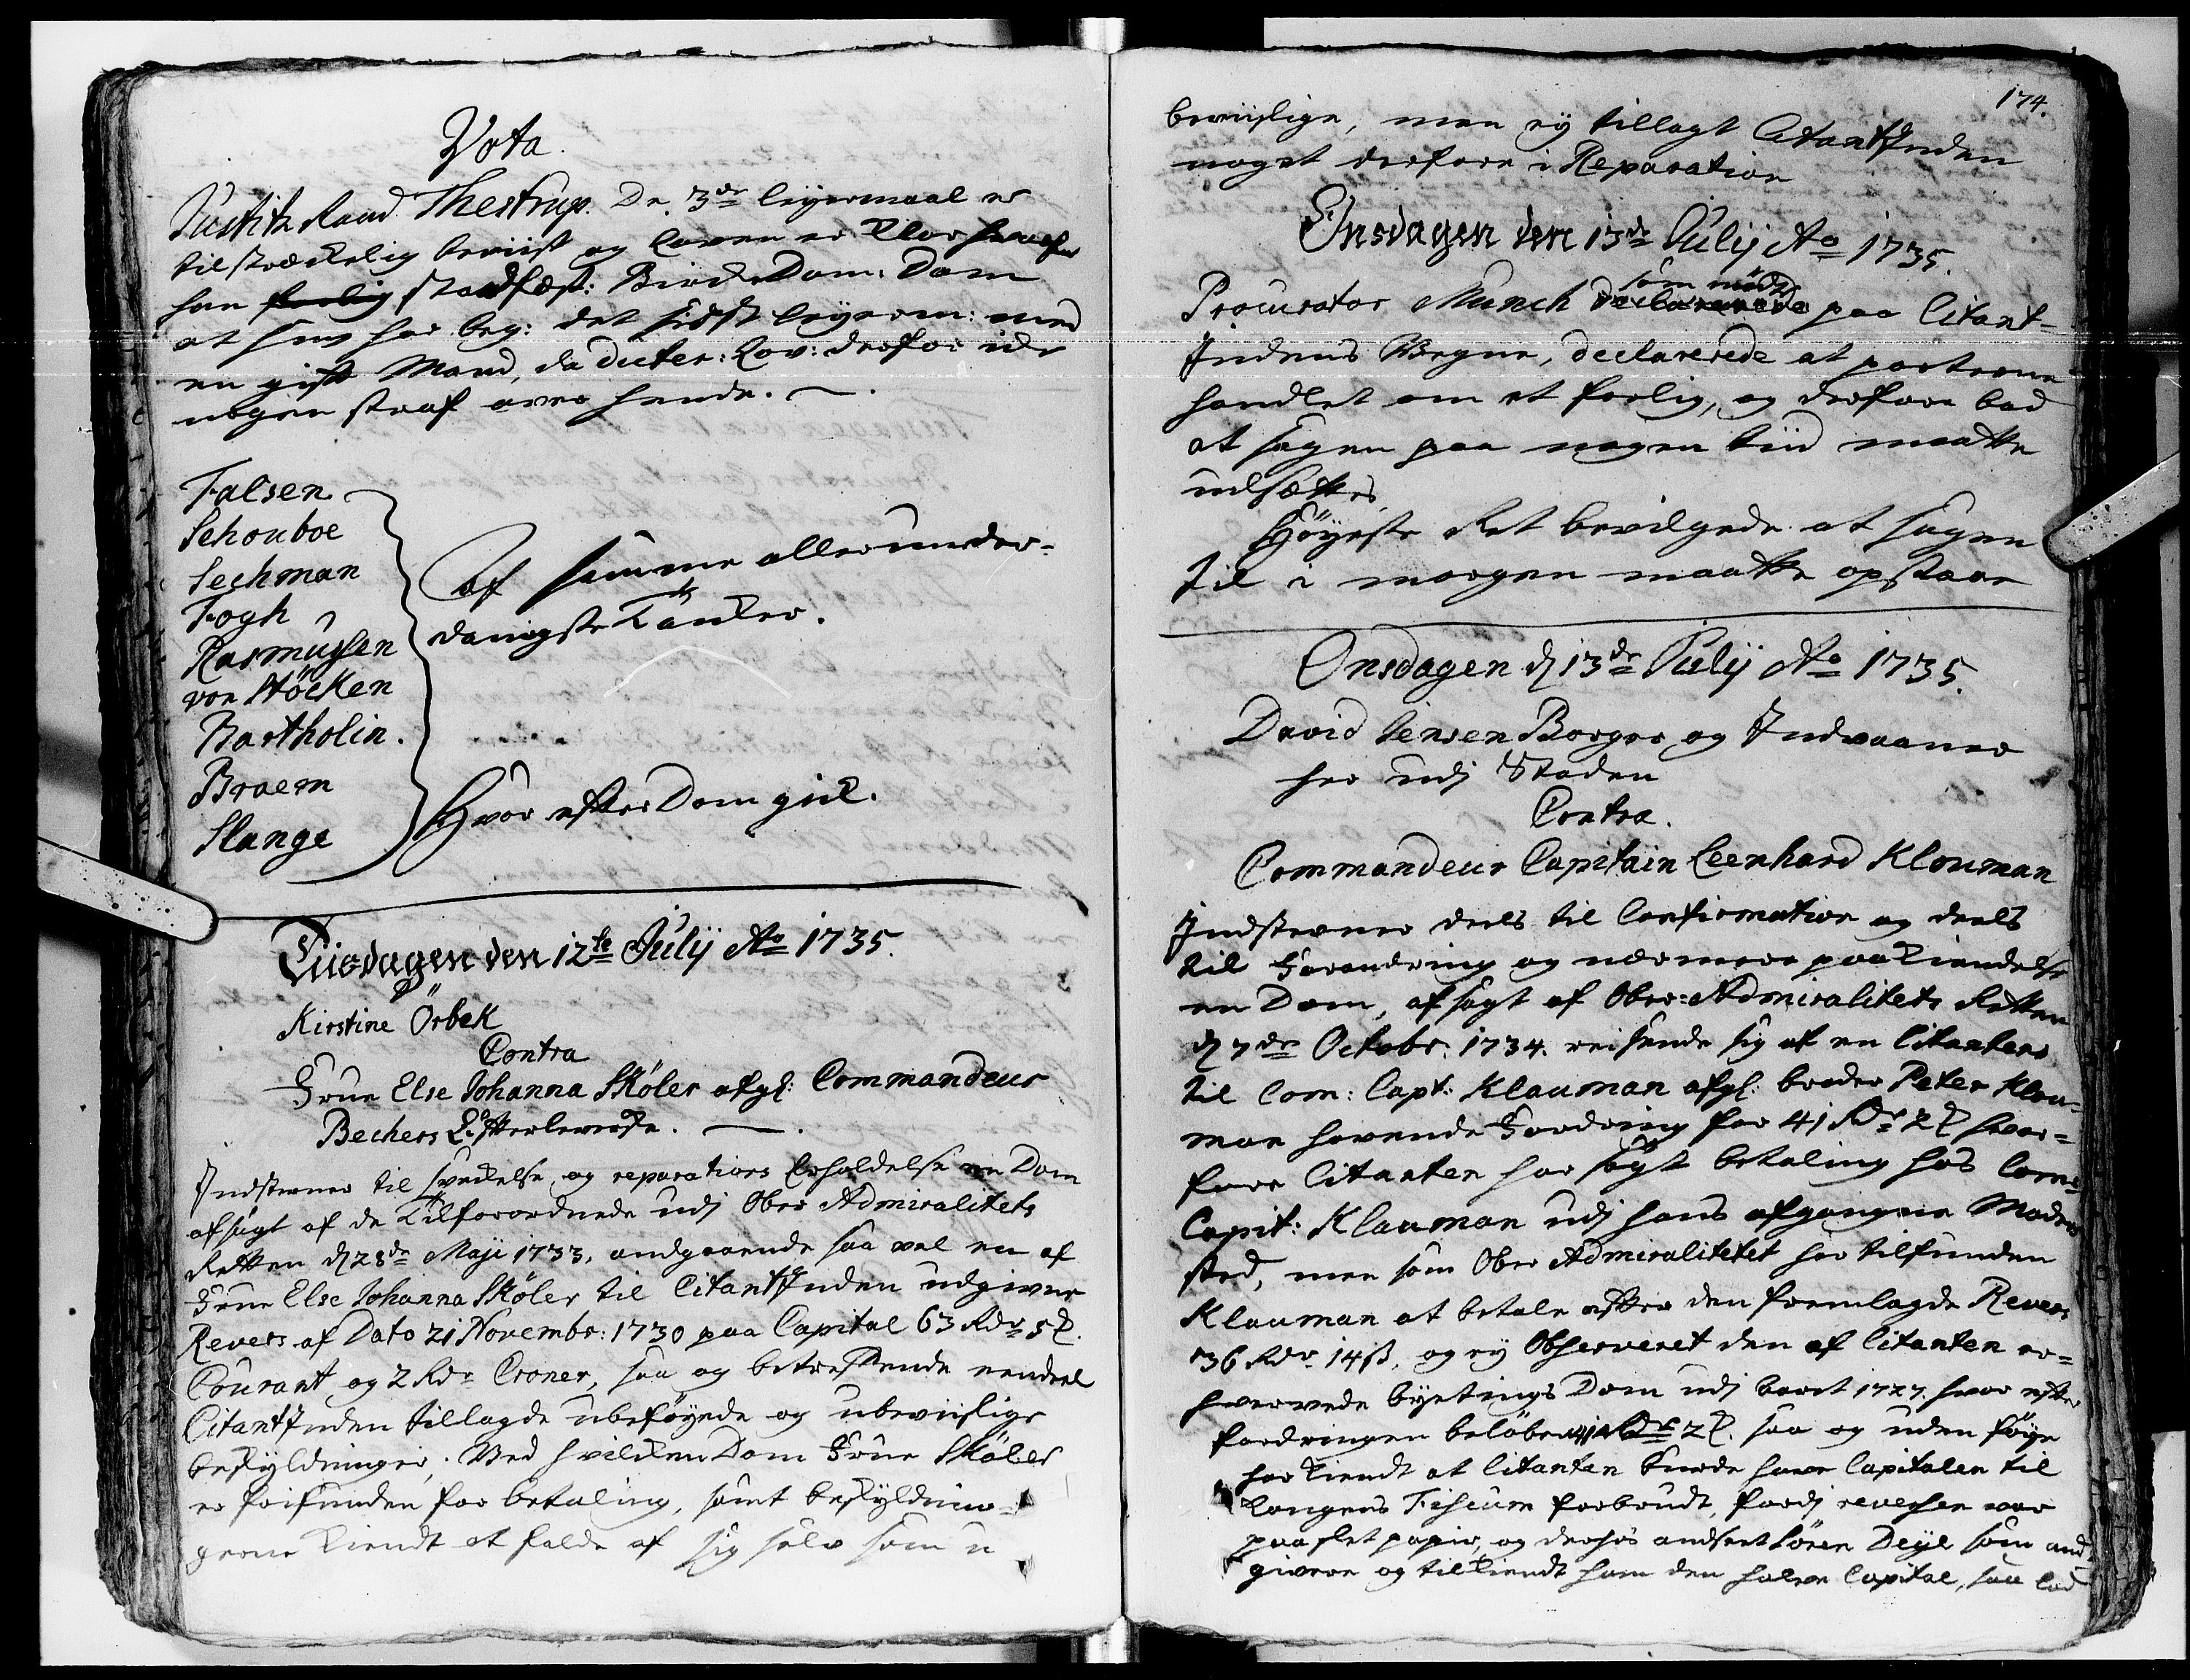 Vota.
Justitz Raad Thestrup. De 3de leyermaal er
tilstrækkelig beviist og loven er klar hvorfor
han stadfæst: Birke Dom: Dom
at hun har beg: det sidst leyerm: med
en gift Mand, da dicter: Lov: derfor icke
nogen straf over hende.
Falsen
Schouboe
Sechman
Fogh
Rasmussen
von Stöcken
Bartholin.
Braem
Slange
Af samme allerunder-
danigste Tanker.
Hvor efter Dom gik.
Tiisdagen den 12te Julij Ao 1735.
Kirstine Örbek
Contra
Frue Else Johanna Sköler afg: Commandeur
Bechers Efterleverske.
Indstevner til svækelse og reparations Erholdelse en Dom
afsagt af de Tilforordnede udj Ober Admiralitets
Retten d 28de Maji 1733, andgaaende saa vel en af
Frue Else Johanna Sköler til Citantinden udgiven
Revers af Dato 21 Novembr: 1730 paa Capital 63 Rdr 5 ℔.
Courant og 2 Rdr Croner, saa og betreffende eendeel
Citantinden tillagde ubeföyede og ubeviislige
beskyldninger. Ved hvilken Dom Frue Sköler
er frifunden for betaling, samt beskyldnin-
gerne kiendt at falde af sig selv som u
174.
beviislige, men ey tillagt Citantinden
noget derfore i Reparation
Onsdagen den 13de Julij Ao 1735.
som mödte
Procurator Munch declarerede paa Citant-
Indens Vegne, declarerede at parterne
handlet om et forlig, og derfore bad
at sagen paa nogen tiid maatte
udsættes
Höyeste Ret bevilgede at sagen
til i morgen maatte opstaae
Onsdagen d 13de Julij Ao 1735.
David Jensen Borger og Indvaaner
her udj Staden
Contra.
Commandeur Capitain Leenhard Klouman
Indstevner deels til Confirmation og deels
til Forandring og nærmere paakiendelse
en Dom, afsagt af Ober-Admiralitets Retten
d 7de Octobr: 1734. reisende sig af en Citanten
til Com: Capt: Klauman afg: broder Peter Klou-
man havende Fordring for 41 Rdr 2 ℔ hvor-
fore Citanten har sögt betaling hos Com:
Capit: Klauman udj hans afgangne Moders
sted, men som Ober Admiralitetet har tilfunden
Klauman at betale efter den fremlagde Revers
36 Rdr 14 ß, og ey Observeret den af Citanten er-
hvervede byetings Dom udj 1727. hvor efter
fordringen belöber 41 Rdr 2 ℔. saa og uden föye
har kiendt at Citanten burde have Capitalen til
Kongens Fiscum forbrudt, fordj reversen var
paa slet papir, og derhos andsert Sören Deyl som and-
givere og tilkiendt ham den halve Capital, saa lod